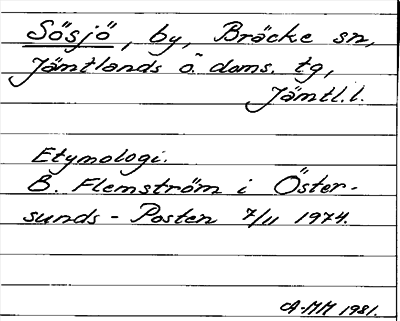 Sösjö, by, Bräcke sn,
Jämtlands ö. doms. tg,
Jämtl.l.
Etymologi.
B. Flemström i Öster-
sunds-Posten 7/11 1974.
A-MM 1981.